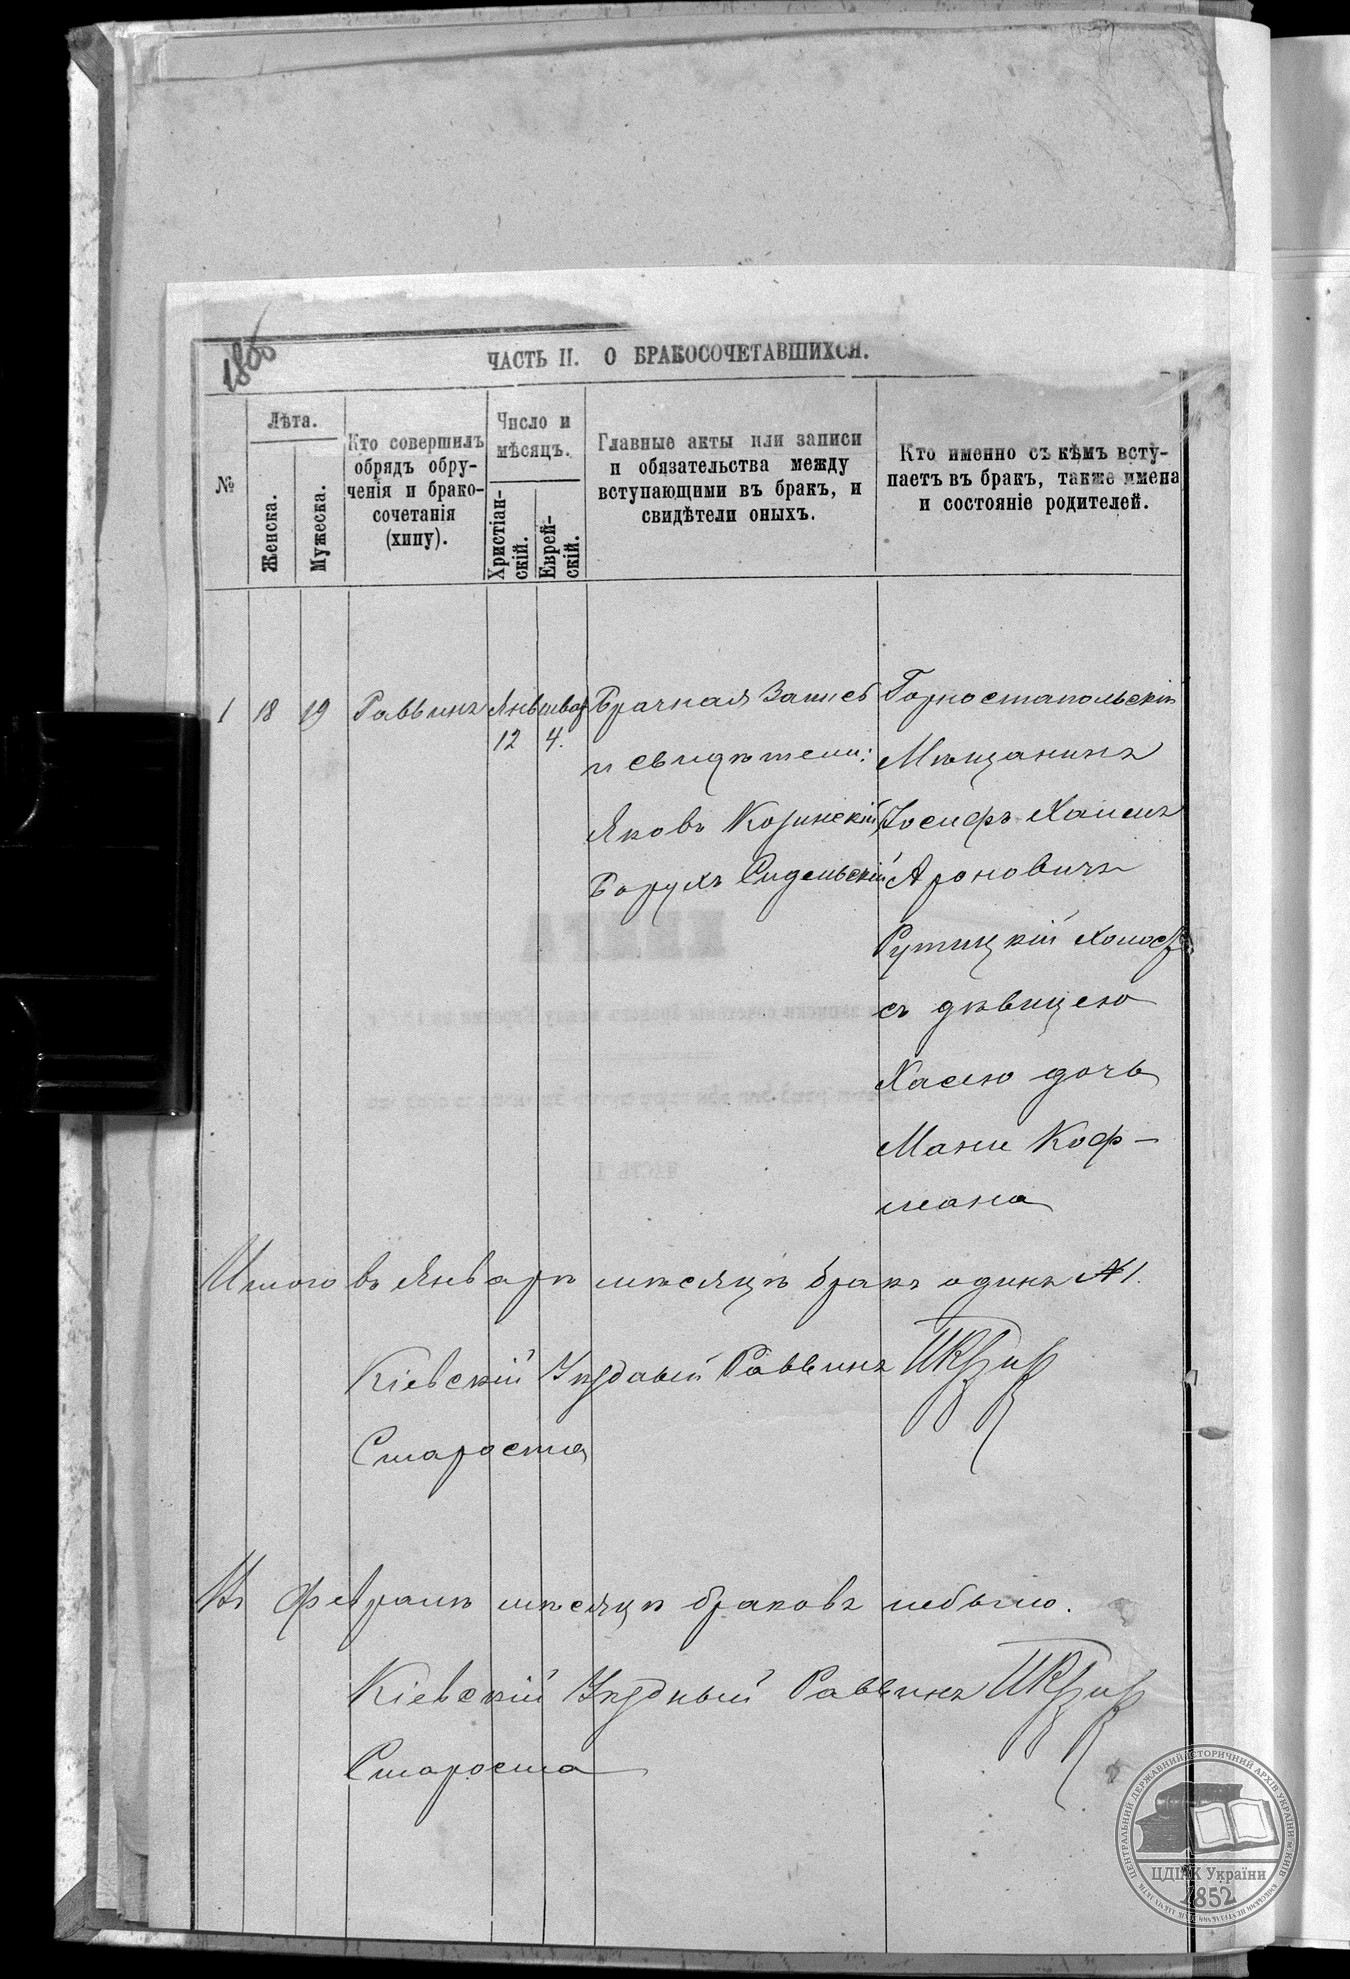 ЧАСТЬ II. О БРАКОСОЧЕТАВШИХСЯ.
№
Лѣта.
Женска.
Мужеска.
Кто совершилъ
обрядъ обру-
ченія и брако-
сочетанія
(хипу).
Число и
мѣсяцъ.
Христіан-
скій.
Еврей-
скій.
Главные акты или записи
и обязательства между
вступающими въ бракъ, и
свидѣтели оныхъ.
Кто именно съ кѣмъ всту-
паетъ въ бракъ, также имена
и состояніе родителей.
1 18 19 Раввинъ
Янв
12
шват
4.
Брачная Запись
и свидѣтели:
Яковъ Козинскій
Борухъ Сидельскій
Горностапольскій
Мѣщанинъ
Іосифъ Хаимъ
Ароновичъ
Рутицкій холост
съ дѣвицею
Хасею дочь
Мани Коф-
мана
Итого въ Январѣ мѣсяцѣ бракъ одинъ №1.
Кіевскій Уѣздный Раввинъ
Староста
Въ Февралѣ мѣсяцѣ браковъ небыло.
Кіевскій Уѣздный Раввинъ
Староста
КНИГА
ЧАСТЬ I.
ЦЕНТРАЛЬНИЙ ДЕРЖАВНИЙ ІСТОРИЧНИЙ АРХІВ УКРАЇНИ м. КИЇВ
ЦДІАК України
1852